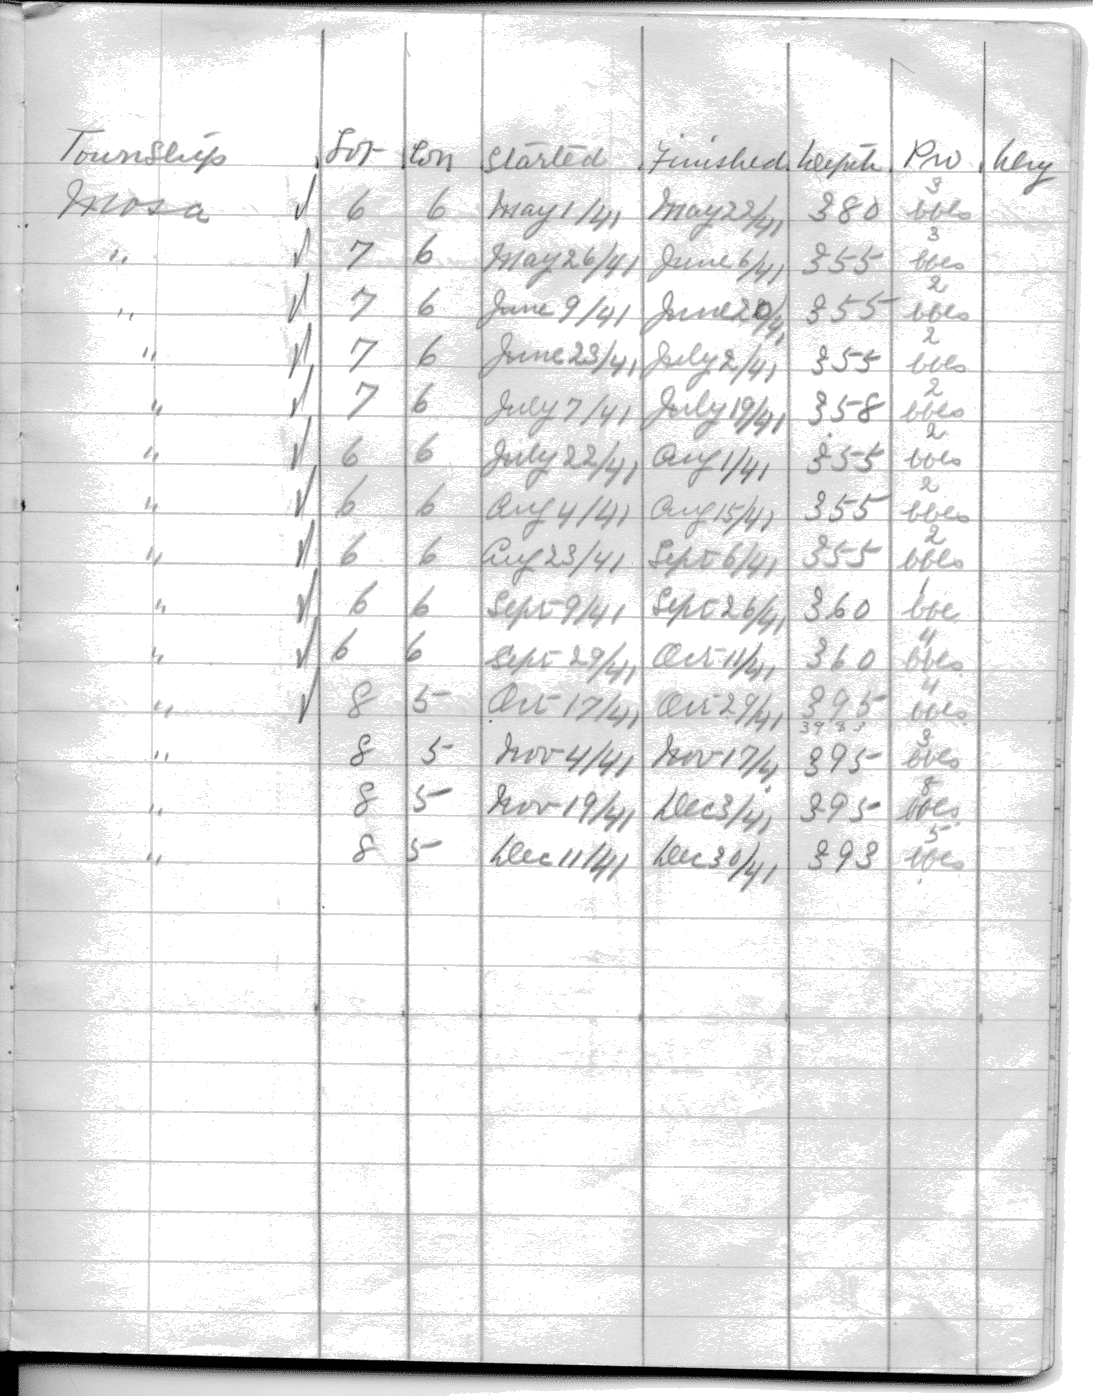 Township Lot Con Started Finished Depth Pro Dry
Mosa ✓ 6 6 May 1/41 May 22/41 380 3 bbls
" ✓ 7 6 May 26/41 June 6/41 355 3 bbls
" ✓ 7 6 June 9/41 June 20/41 355 2 bbls
" ✓ 7 6 June 23/41 July 2/41 355 2 bbls
" ✓ 7 6 July 7/41 July 19/41 358 2 bbls
" ✓ 6 6 July 22/41 Aug 1/41 355 2 bbls
" ✓ 6 6 Aug 4/41 Aug 15/41 355 2 bbls
" ✓ 6 6 Aug 23/41 Sept 6/41 355 2 bbls
" ✓ 6 6 Sept 9/41 Sept 26/41 360 1 bbl
" ✓ 6 6 Sept 29/41 Oct 11/41 360 " bbls
" ✓ 8 5 Oct 17/41 Oct 29/41 395 " bbls
" 8 5 Nov 4/41 Nov 17/41 395 3 bbls
" 8 5 Nov 19/41 Dec 3/41 395 8 bbls
" 8 5 Dec 11/41 Dec 30/41 393 5 bbls